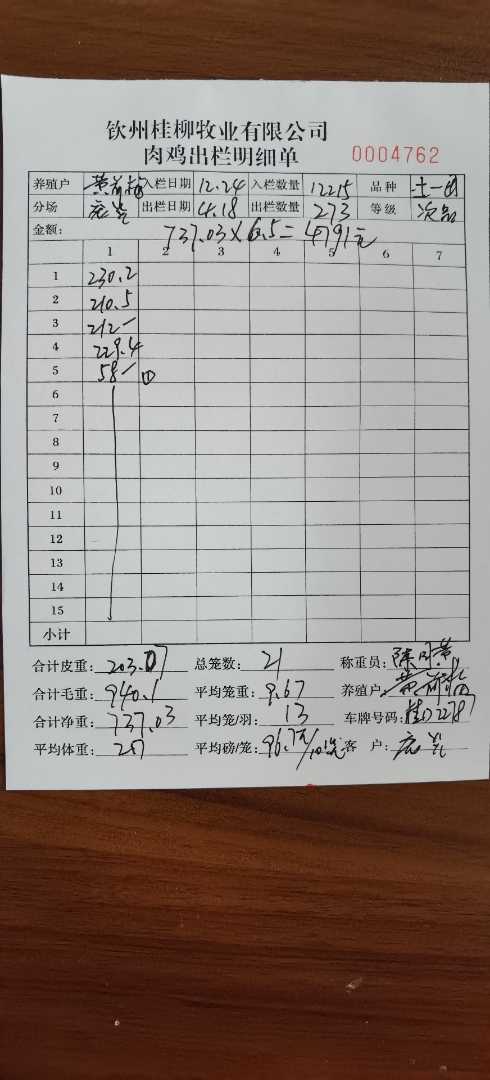 钦州桂柳牧业有限公司
肉鸡出栏明细单 0004762
养殖户 入栏日期 12.24 入栏数量 12215 品种 土一
分场 出栏日期 4.18 出栏数量 273 等级 次品
金额: 737.03×6.5=4791元
1 2 3 4 5 6 7
1 230.2
2 210.5
3 212-
4 229.4
5 58- ①
6
7
8
9
10
11
12
13
14
15
小计
合计皮重: 203.07 总笼数: 21 称重员:
合计毛重: 940.1 平均笼重: 9.67 养殖户:
合计净重: 737.03 平均笼/羽: 13 车牌号码: 桂D22787
平均体重: 2.7 平均磅/笼: 96.7斤/10笼 客 户: